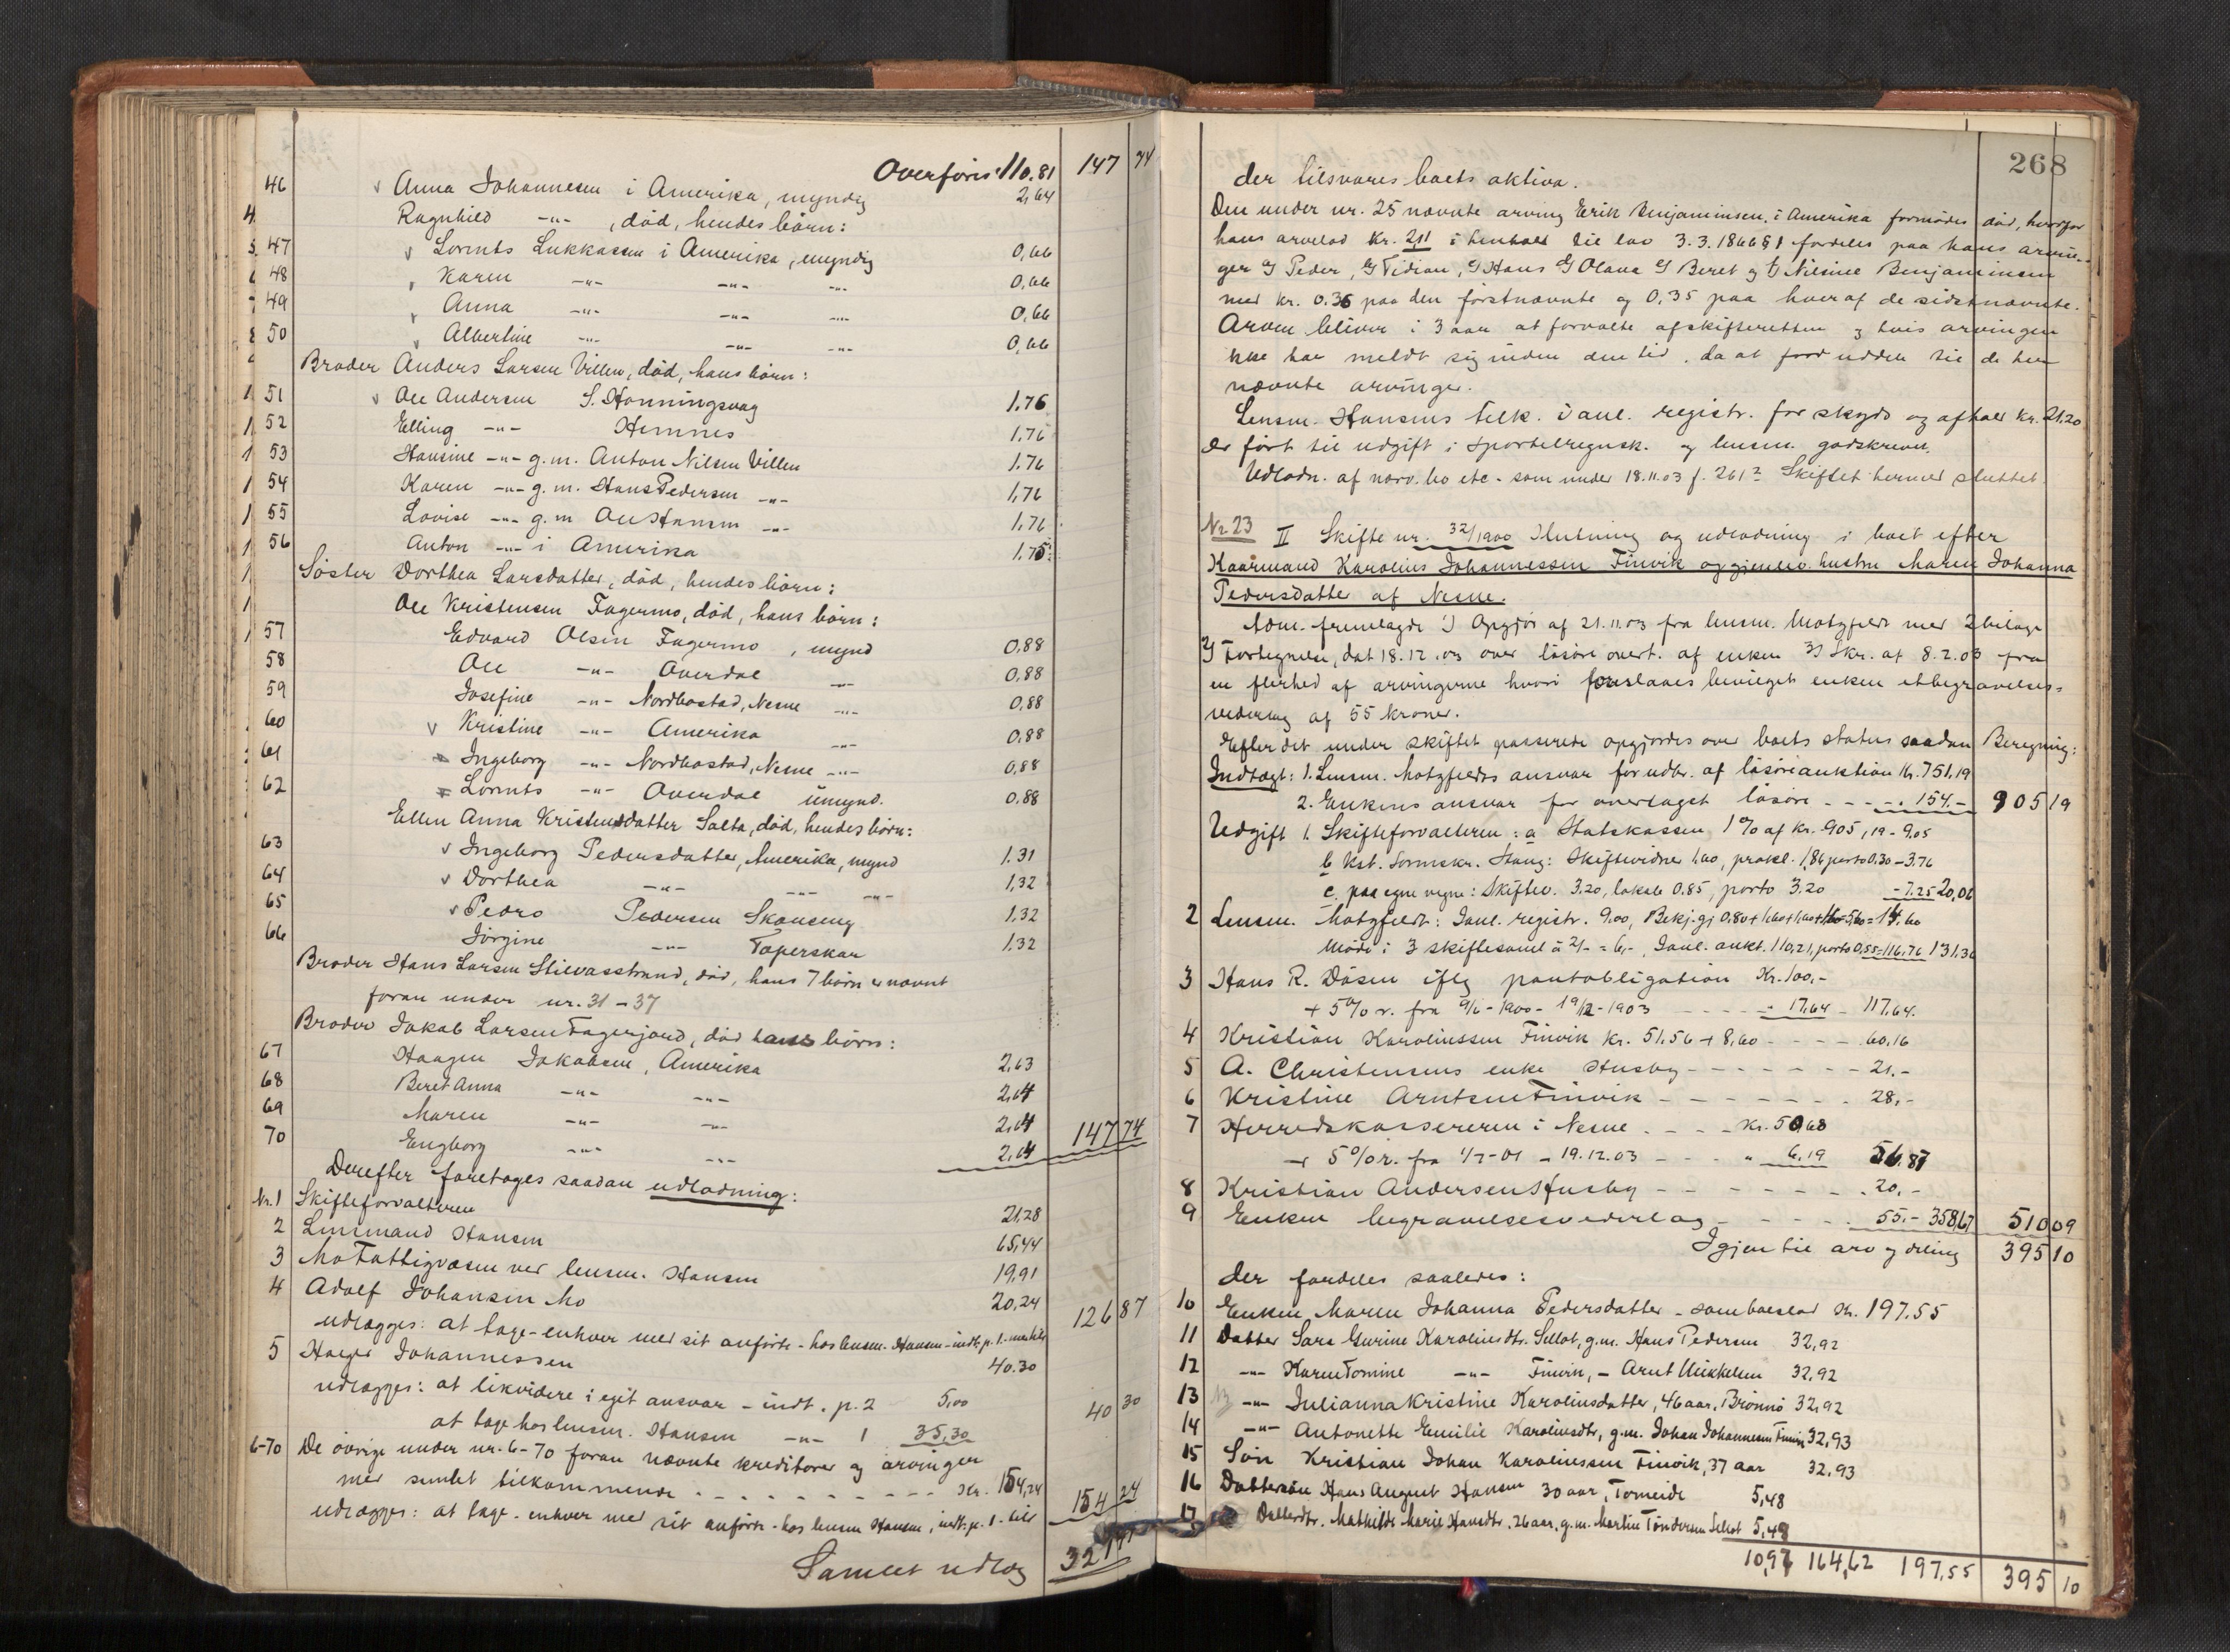 Overføris 110.81 147 74
46 Anna Johannesen i Amerika, myndig 2,64
Ragnhild -"- , död, hendes børn:
47 Lornts Lukkassen i Amerika, myndig 0,66
48 Karen -"- -"- -"- 0,66
49 Anna -"- -"- -"- 0,66
50 Albertine -"- -"- -"- 0,66
Broder Anders Larsen Villen, död, hans børn:
51 Ole Andersen S. Honningsvag 1.76
52 Elling -"- Hemnes 1.76
53 Hansine -"- g.m. Anton Nilsen Villen 1.76
54 Karen -"- g.m. Hans Pedersen -"- 1,76
55 Lovise -"- g.m Ole Hansen -"- 1.76
56 Anton -"- i Amerika 1.75
Söster Dorthea Larsdatter, död, hendes børn:
Ole Kristensen Fagermo, död, hans børn:
57 Edvard Olsen Fagermo , mynd 0,88
58 Ole -"- Overdal -"- 0,88
59 Josefine -"- Nordbostad, Nesne -"- 0,88
60 Kristine -"- Amerika -"- 0,88
61 Ingeborg -"- Nordbostad, Nesne -"- 0,88
62 Lornts -"- Overdal umynd. 0.88
Ellen Anna Kristensdatter Salta, död, hendes børn:
63 Ingeborg Pedersdatter, Amerika, mynd 1.31
64 Dorthea -"- -"- -"- 1,32
65 Pedro Pedersen Skonseng 1.32
66 Jörgine -"- Toperskar 1.32
Broder Hans Larsen Stilvasstrand, död, hans 7 börn er nævnt
foran under nr. 31-37
Broder Jakob Larsen Fagerjord, död hans börn:
67 Haagen Jakobsen, Amerika 2,63
68 Beret Anna -"- -"- 2,64
69 Maren -"- -"- 2,64
70 Engborg -"- -"- 2,64 147 74
Derefter foretages saadan udlodning:
Nr. 1 Skifteforvalteren 21,28
2 Lensmand Hansen 65,44
3 Mo Fattigvæsen ved lensm. Hansen 19,91
4 Adolf Johansen Mo 20,24 126 87
udlægges: at tage - enhver med sit anførte - hos lensm. Hansen - indt. p. 1 -
5 Johannessen 40.30
udlægges: at likvidere i eget ansvar - indt. p. 2 5,00
at tage hos lensm. Hansen -"- 1 35,30 40 30
6-70 De øvrige under nr. 6-70 foran nævnte kreditorer og arvinger
med samlet tilkommende - - - Kr. 154,24
udlægges: at tage - enhver med sit anførte - hos lensm Hansen, indt. p. 1 - 154 24
Samlet udlæg 321
268
der tilsvares boets aktiva.
Den under nr. 25 nævnte arving Erik Benjaminsen i Amerika formodes død, hvorfor
hans arvelod Kr. 2,11 i henhold til lov 3.3.1866 § 1 fordeles paa hans arvin-
ger Peder, Tidian, Hans Olava Beret og Nilsine Benjaminsen
med kr. 0.36 paa den førstnævnte og 0,35 paa hver af de sidstnævnte.
Arven bliver i 3 aar at forvalte af skifteretten og hvis arvingen
ikke har meldt sig inden den tid, da at udelt til de her
nævnte arvinger.
Lensm. Hansens tilk. i anl. registr. for skyds og ophold kr. 21,20
er ført til udgift i sportelregnsk. og lensm. godskrevet.
Udlodn. af nærv. bo etc. som under 18.11.03 f. 261 2 Skiftet hermed sluttet.
Nr. 23 II Skifte nr. 32/1900 Slutning og udlodning i boet efter
Kaarmand Karolius Johannessen Finvik og gjenlev. hustru Maren Johanna
Pedersdatter af Nesne.
Adm. fremlagde 1) Opgjør af 21.11.03 fra lensm. Motzfeldt med 2 bilag
2) Fortegnelse, dat 18.12.03 over løsøre overt. af enken 3) Skr. af 8.2.03 fra
en flerhed af arvingerne hvori foreslaaes bevilget enken et begravelses-
vederlag af 55 kroner.
Efter det under skiftet passerede opgjordes over boets status saadan Beregning:
Indtægt: 1. Lensm. Motzfeldts ansvar for udbr. af løsøreauktion Kr. 751,19
2. Enkens ansvar for overtaget løsøre - - - - 154.- 905 19
Udgift 1. Skifteforvalteren: a Statskassen 1% af kr. 905,19 - 9.05
b Kst. Sorenskr. Stang: Skiftevidner 1.60, prokl. 1,86 porto 0,30 - 3.76
c. paa egne vegne: Skiftev. 3.20, lokale 0.85, porto 3.20 - 7.25 20,06
2 Lensm. Motzfeldt: I anl. registr. 9.00, Bekj. gj 0.80+1,60+1,60+1,60=5,60=14.60
Møde i 3 skiftesaml à 2/- = 6,-, I anl. aukt. 110,21, porto 0,55=116,76 131.36
3 Hans R. Dåsen iflg pantobligation Kr. 100,-
+ 5% r. fra 9/6-1900 - 19/12-1903 - - - - " 17,64 - 117,64.
4 Kristian Karoliussen Finvik kr. 51.56 + 8,60 - - - - 60,16
5 A. Christensens enke Husby - - - - - - - 21.-
6 Kristine Arntsen Finvik - - - - - - - 28,-
7 Herredskassereren i Nesne - - - - Kr. 50,68
+ 5% r. fra 1/7-01 - 19.12.03 - - - " 6,19 56.87
8 Kristian Andersen Husby - - - - - - - 20,-
9 Enken begravelsesvederlag - - - - - 55.- 358,67 510 09
Igjen til arv og deling 395 10
der fordeles saaledes:
10 Enken Maren Johanna Pedersdatter - som boeslod Kr. 197.55
11 Datter Sara Gurine Karoliusdtr. Sellot, g.m. Hans Pedersen 32,92
12 -"- Karen Tomine -"- Finvik, - Arnt Mikkelsen 32,92
13 -"- Julianna Kristine Karoliusdatter, 46 aar, Brønnø 32,92
14 -"- Antonette Emilie Karoliusdtr, g.m. Johan Johannesen Finvik 32,93
15 Søn Kristian Johan Karoliussen Finvik, 37 aar 32,93
16 Dattersøn Hans August Hansen 30 aar, Tomeide 5,48
17 Datterdtr. Mathilde Marie Hansdtr. 26 aar, g.m. Martin Tøndersen Sellot 5,49
10,97 164,62 197,55 395 10